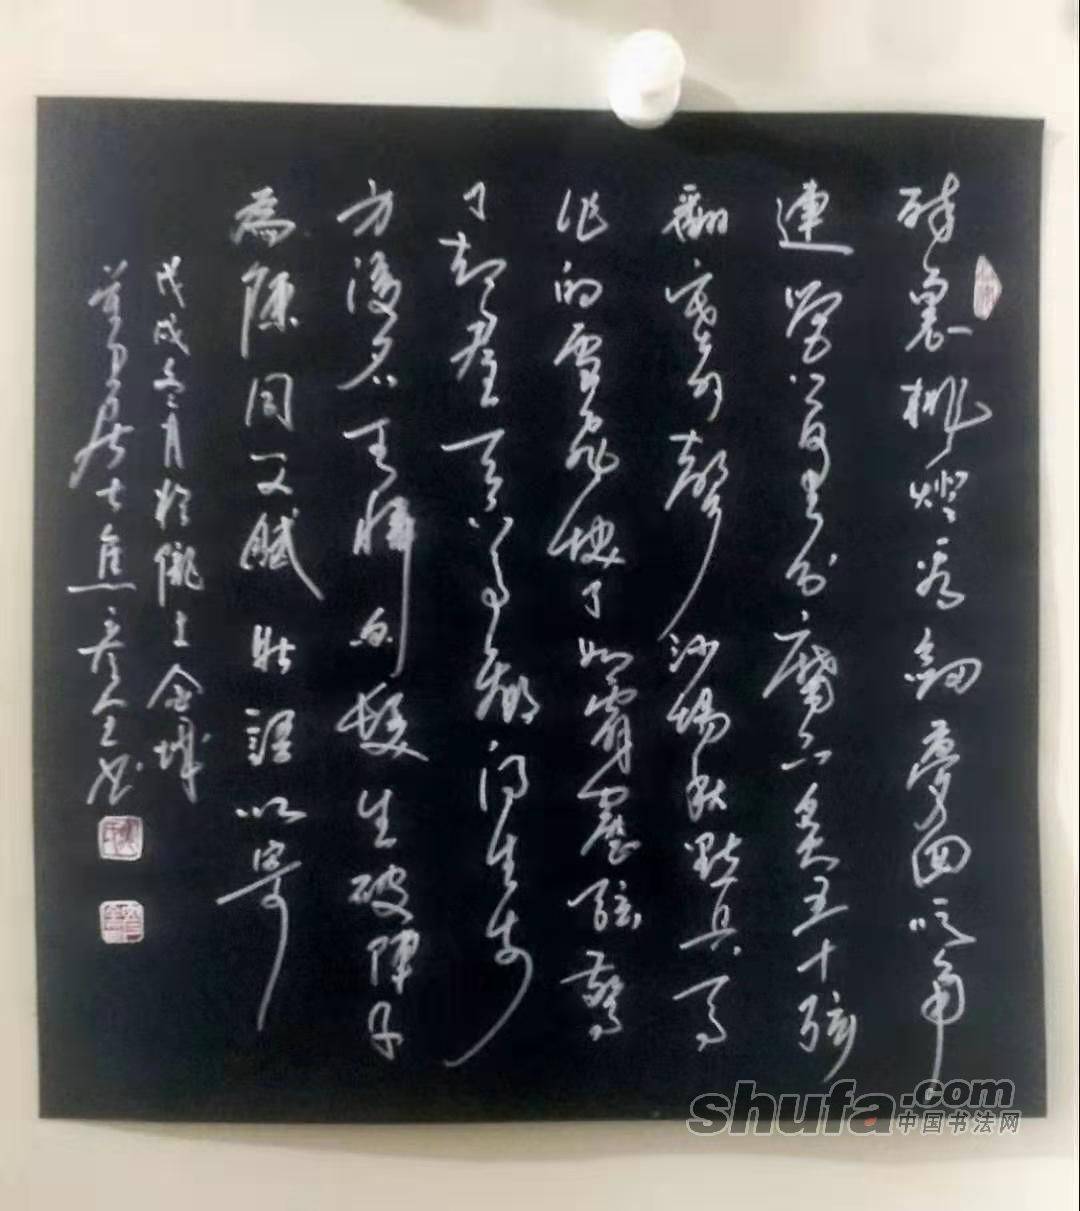 醉裏挑燈看劍夢回吹角
連營八百里分麾下炙五十弦
翻塞外聲沙場秋點兵馬
作的盧飛快弓如霹靂弦驚
了却君王天下事贏得生前
身後名可憐白髮生破陣子
為陳同父賦壯語以寄
戊戌冬月於隴上金城
居士焦書
shufa.com
中国书法网